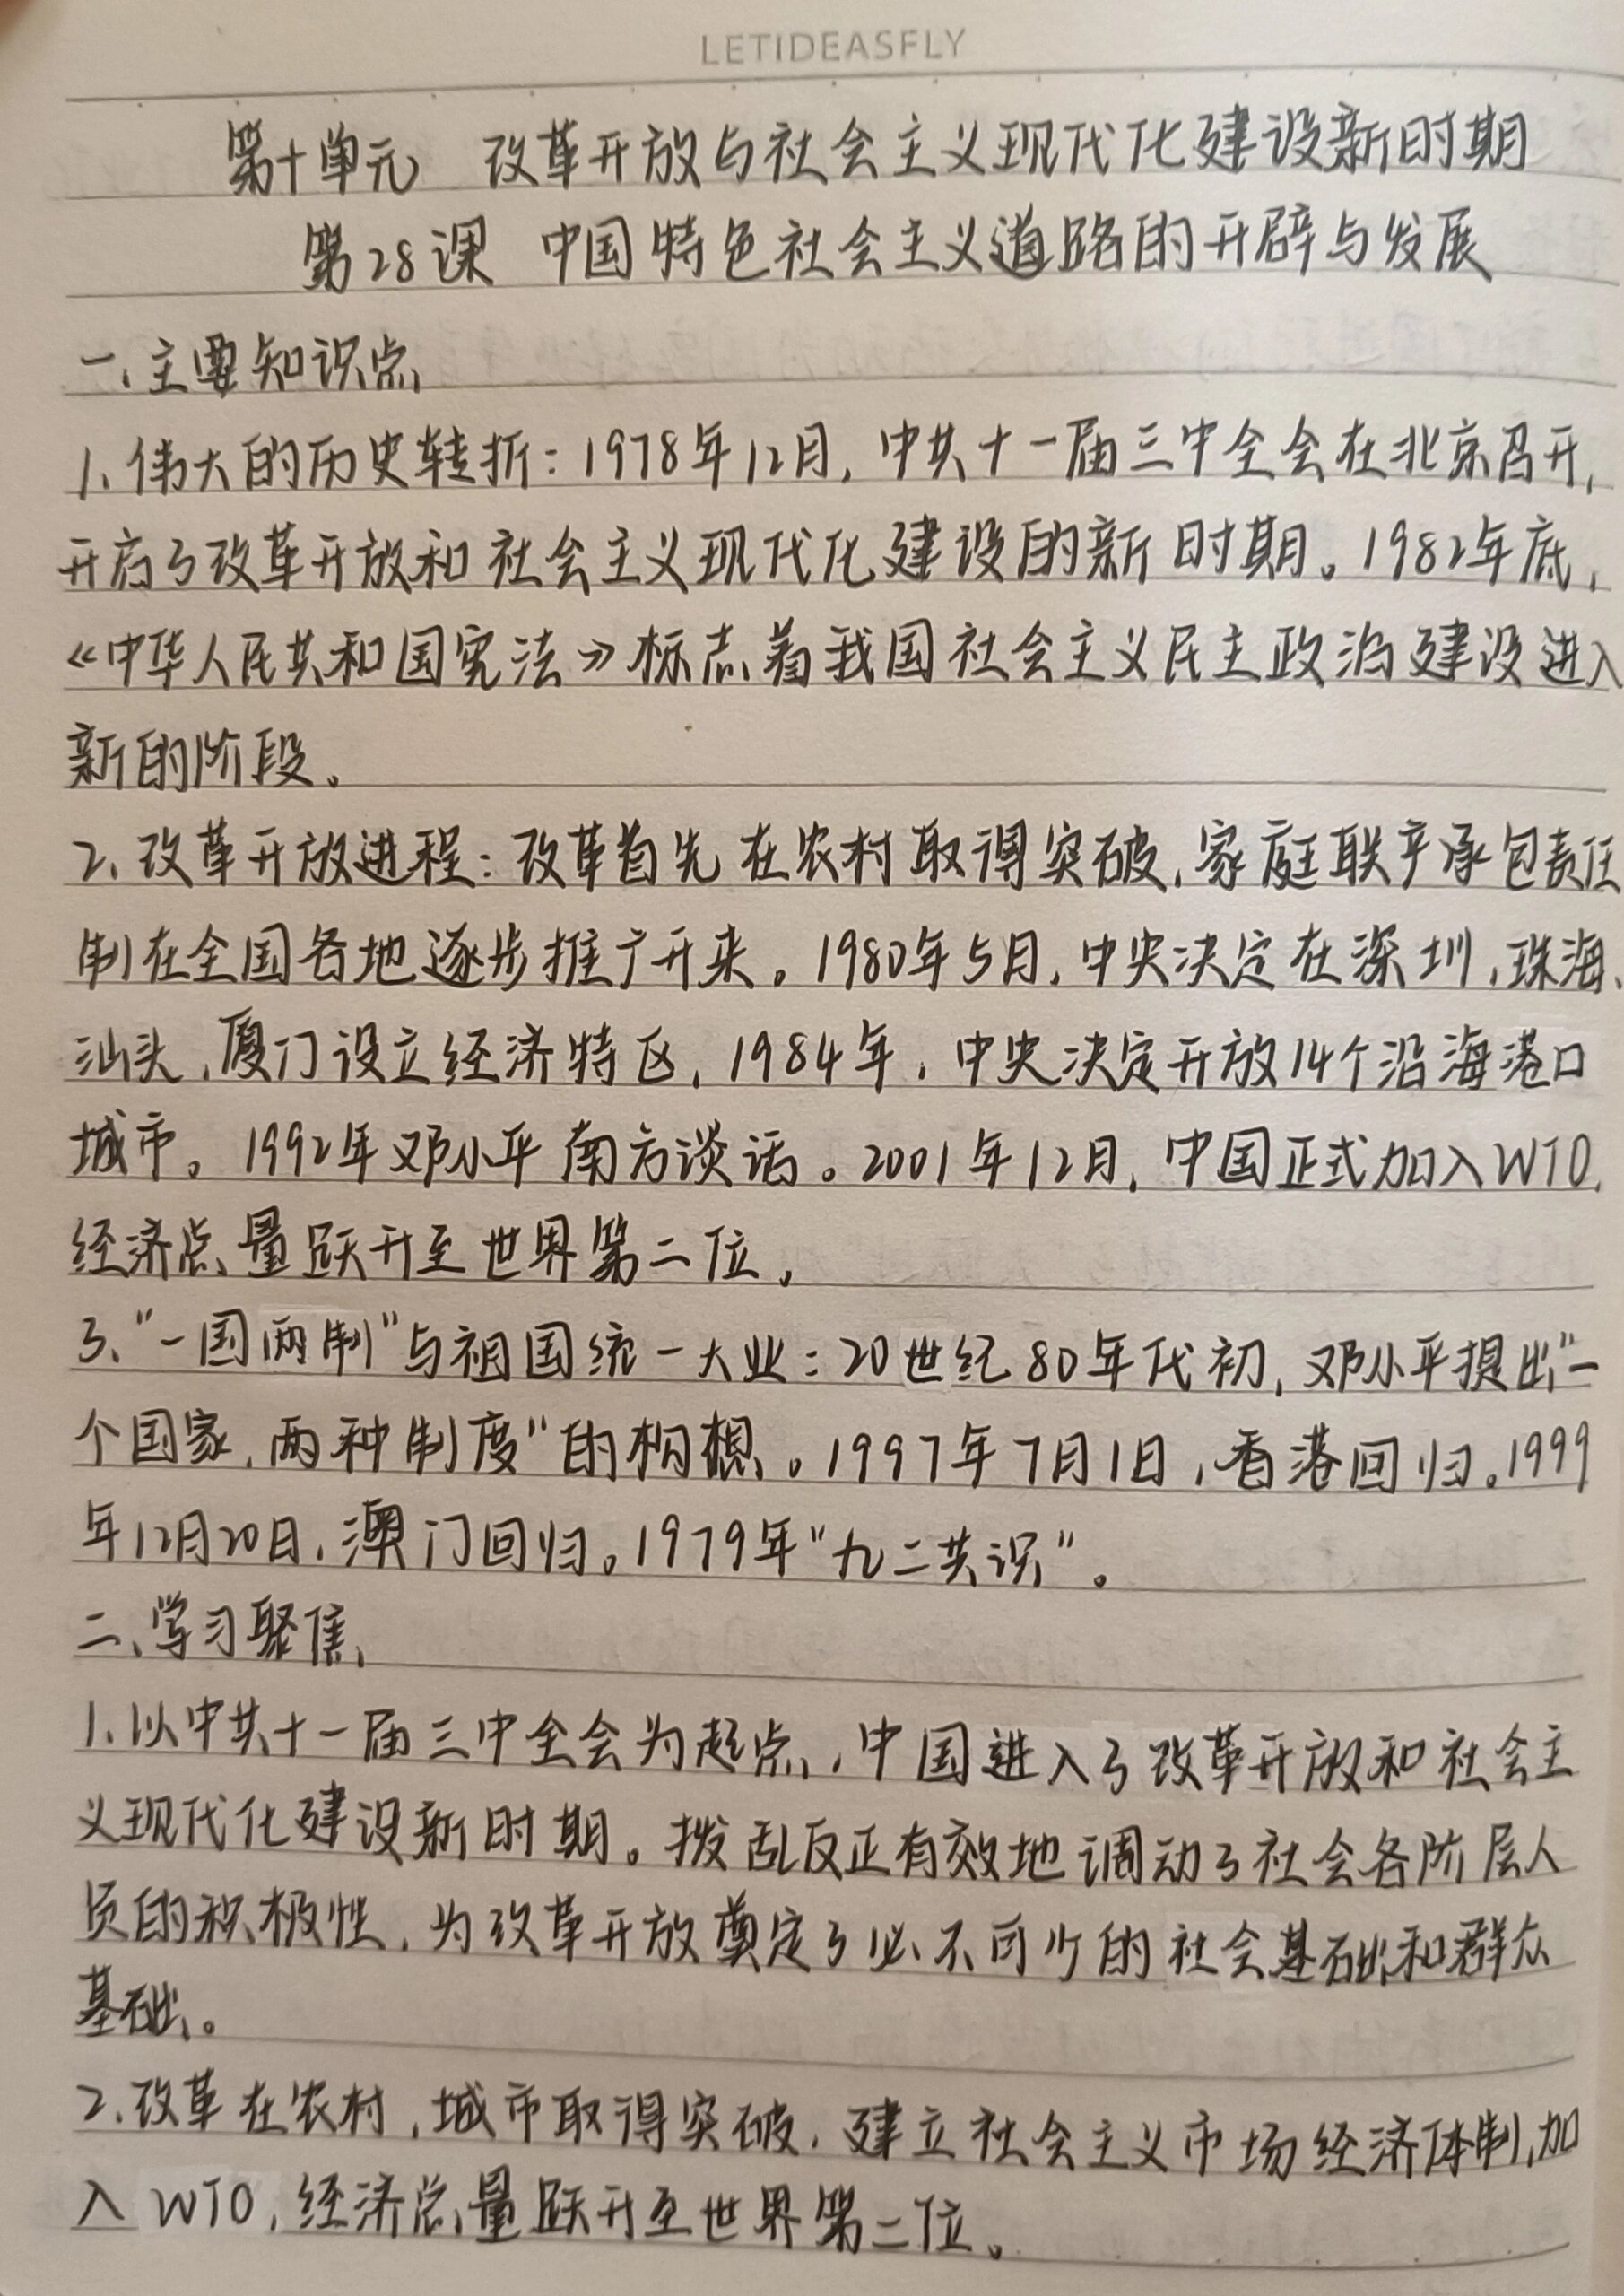 LETIDEASFLY
第十单元 改革开放与社会主义现代化建设新时期
第28课 中国特色社会主义道路的开辟与发展
一、主要知识点
1、伟大的历史转折:1978年12月,中共十一届三中全会在北京召开,
开启了改革开放和社会主义现代化建设的新时期。1982年底,
《中华人民共和国宪法》标志着我国社会主义民主政治建设进入
新的阶段。
2、改革开放进程:改革首先在农村取得突破,家庭联产承包责任
制在全国各地逐步推广开来。1980年5月,中央决定在深圳,珠海、
汕头,厦门设立经济特区,1984年,中央决定开放14个沿海港口
城市。1992年邓小平南方谈话。2001年12月,中国正式加入WTO,
经济总量跃升至世界第二位。
3、"一国两制"与祖国统一大业:20世纪80年代初,邓小平提出"一
个国家,两种制度"的构想。1997年7月1日,香港回归。1999
年12月20日,澳门回归。1979年"九二共识"。
二、学习聚焦、
1.以中共十一届三中全会为起点,中国进入了改革开放和社会主
义现代化建设新时期。拨乱反正有效地调动了社会各阶层人
员的积极性,为改革开放奠定了必不可少的社会基础和群众
基础。
2.改革在农村,城市取得突破,建立社会主义市场经济体制,加
入WTO,经济总量跃升至世界第二位。